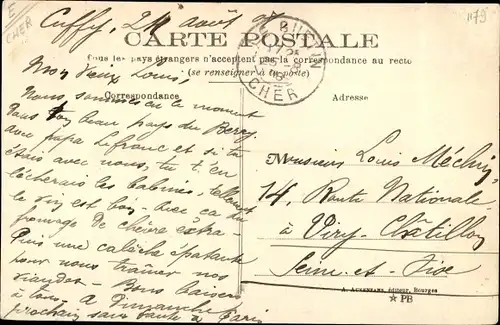 Cuffy, 24 août 08
CARTE POSTALE
Tous les pays étrangers n'acceptent pas la correspondance au recto
(se renseigner à la poste)
CHER
Correspondance
Adresse
Mon Vieux Louis,
Nous sommes en ce moment
dans ton beau pays du Berry
avec papa Lefranc et si tu
étais avec nous, tu t'en
lècherais les babines, tellement
le vin est bon - avec ça du
fromage de chèvre extra -
Puis une calèche épatante
pour nous traîner nos
viandes - Bons baisers
à tous - A Dimanche
prochain sans faute à Paris
Monsieur Louis
14, Route Nationale
à Viry-Châtillon
Seine-et-Oise
A. Auxenfans, éditeur, Bourges
★ PB
E
CHER
1179